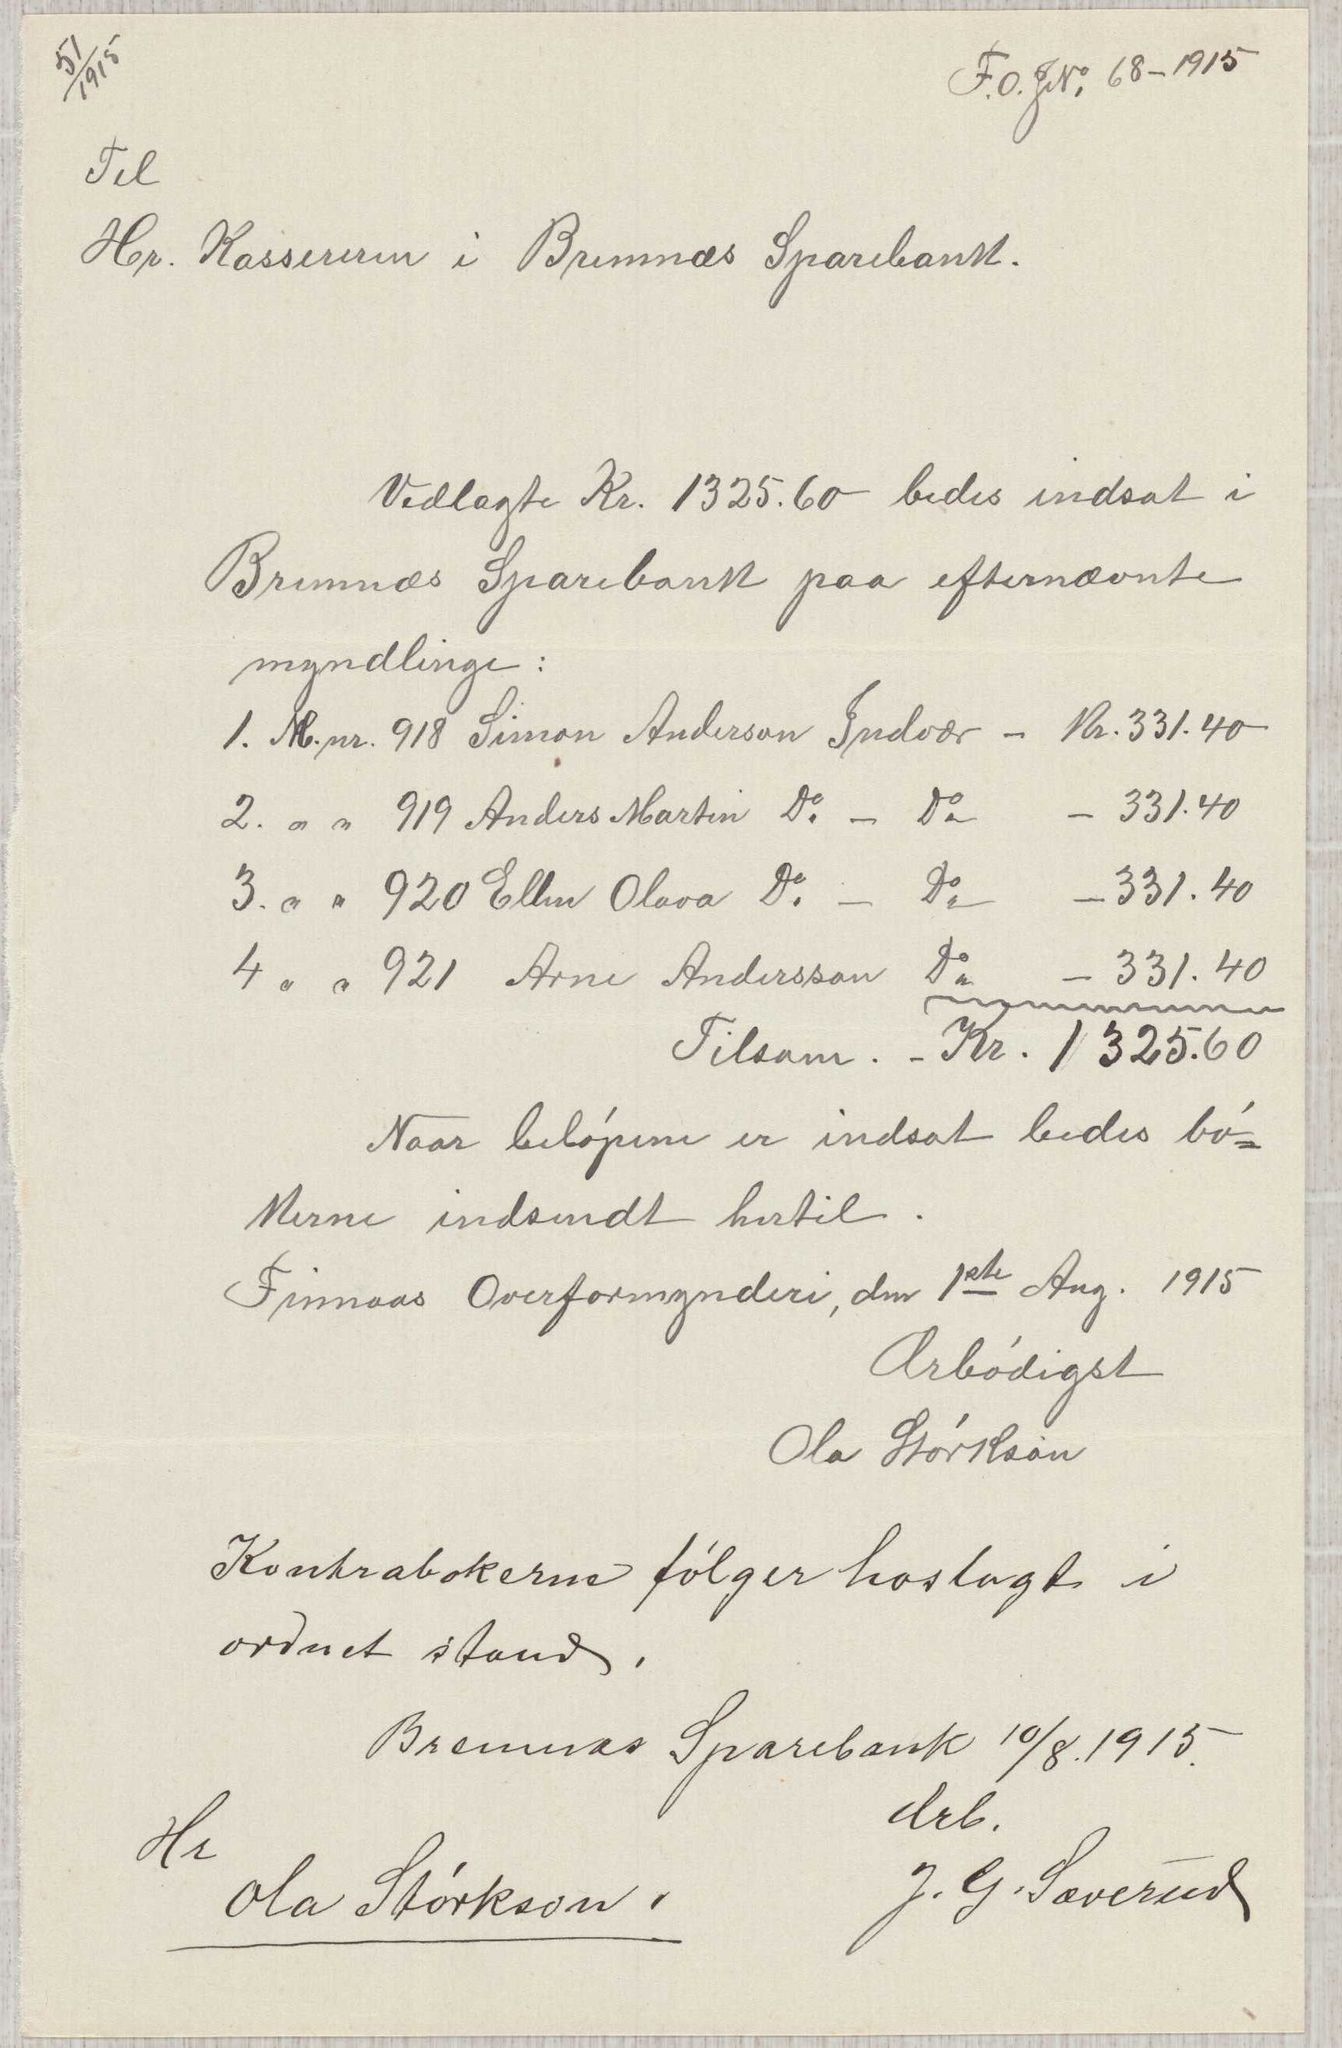 51/1915
F.O. J.No. 68-1915
Til
Hr. Kassereren i Bremnæs Sparebank.
Vedlagte Kr. 1325.60 bedes indsat i
Bremnæs Sparebank paa efternævnte
myndlinge:
1. M.nr. 918 Simon Anderson Indvær - Kr. 331.40
2. " " 919 Anders Martin Do. - Do - 331.40
3. " " 920 Ellen Olava Do. - Do - 331.40
4 " " 921 Arne Andersson Do - 331.40
Tilsam. - Kr. 1325.60
Naar belópene er indsat bedes bó=
kerne indsendt hertil.
Finnaas Overformynderi, den 1ste Aug. 1915
Ærbódigst
Ola Stórkson
Kontrabokerne fólger hoslagt i
ordnet stand.
Bremnæs Sparebank 10/8.1915.
Ærb.
J. G. Sæverud
Hr
Ola Stórkson.